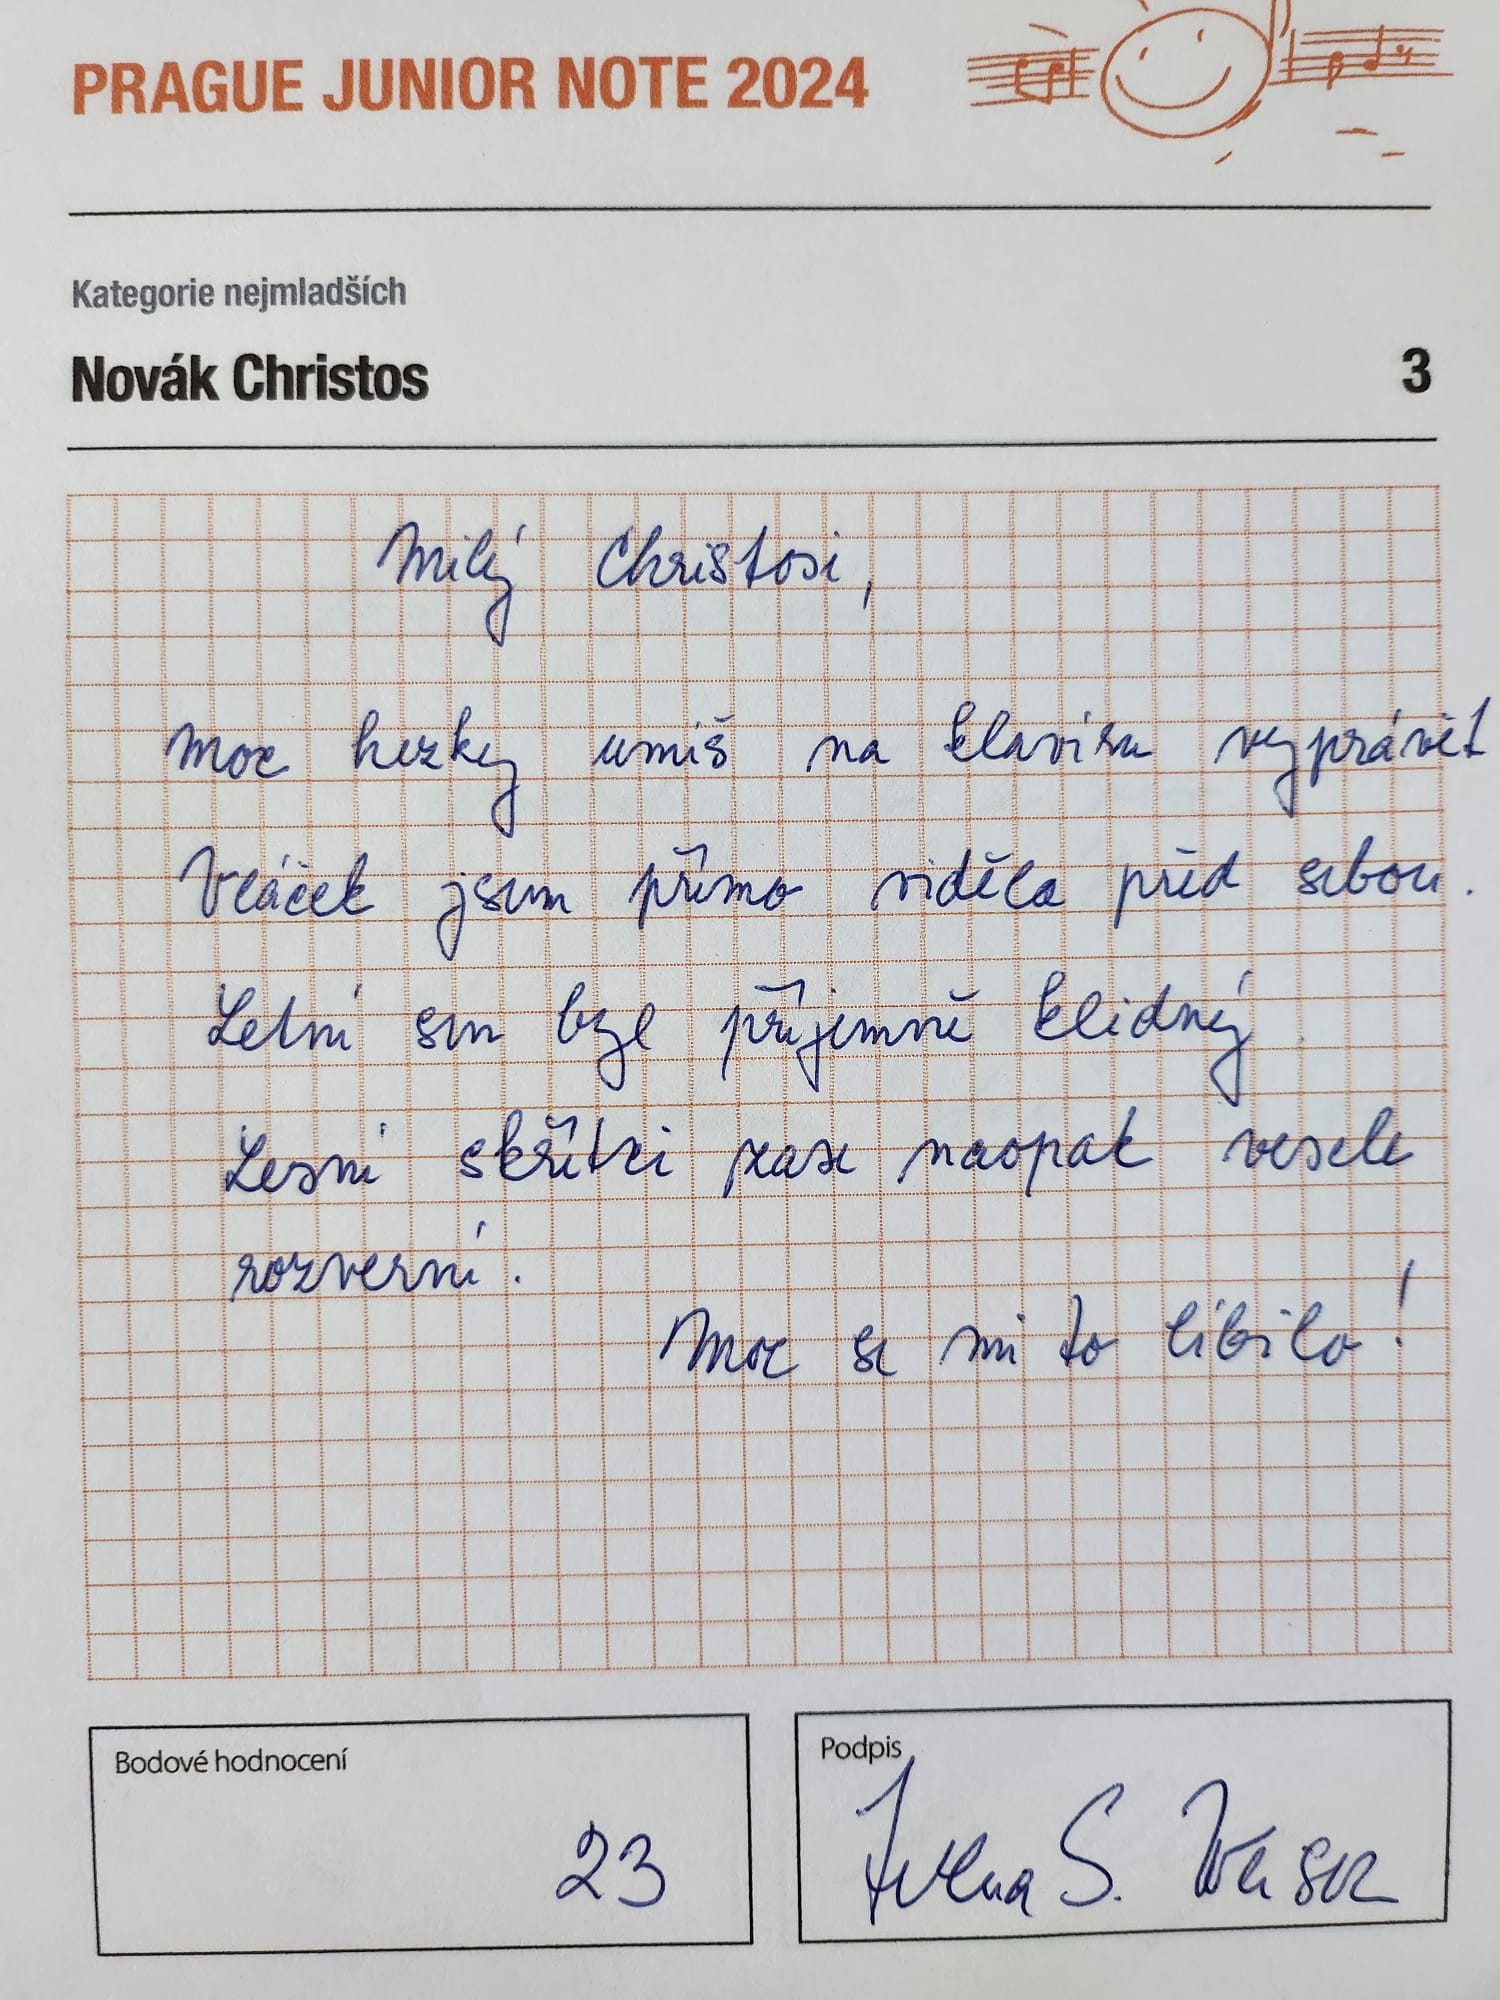 PRAGUE JUNIOR NOTE 2024
Kategorie nejmladších
Novák Christos 3
Milý Christosi,
moc hezky umíš na klavíru vyprávět
Vláček jsem přímo viděla před sebou.
Letní sen byl příjemně klidný.
Lesní skřítci zase naopak vesele
rozverní.
Moc se mi to líbilo!
Bodové hodnocení
23
Podpis
S.